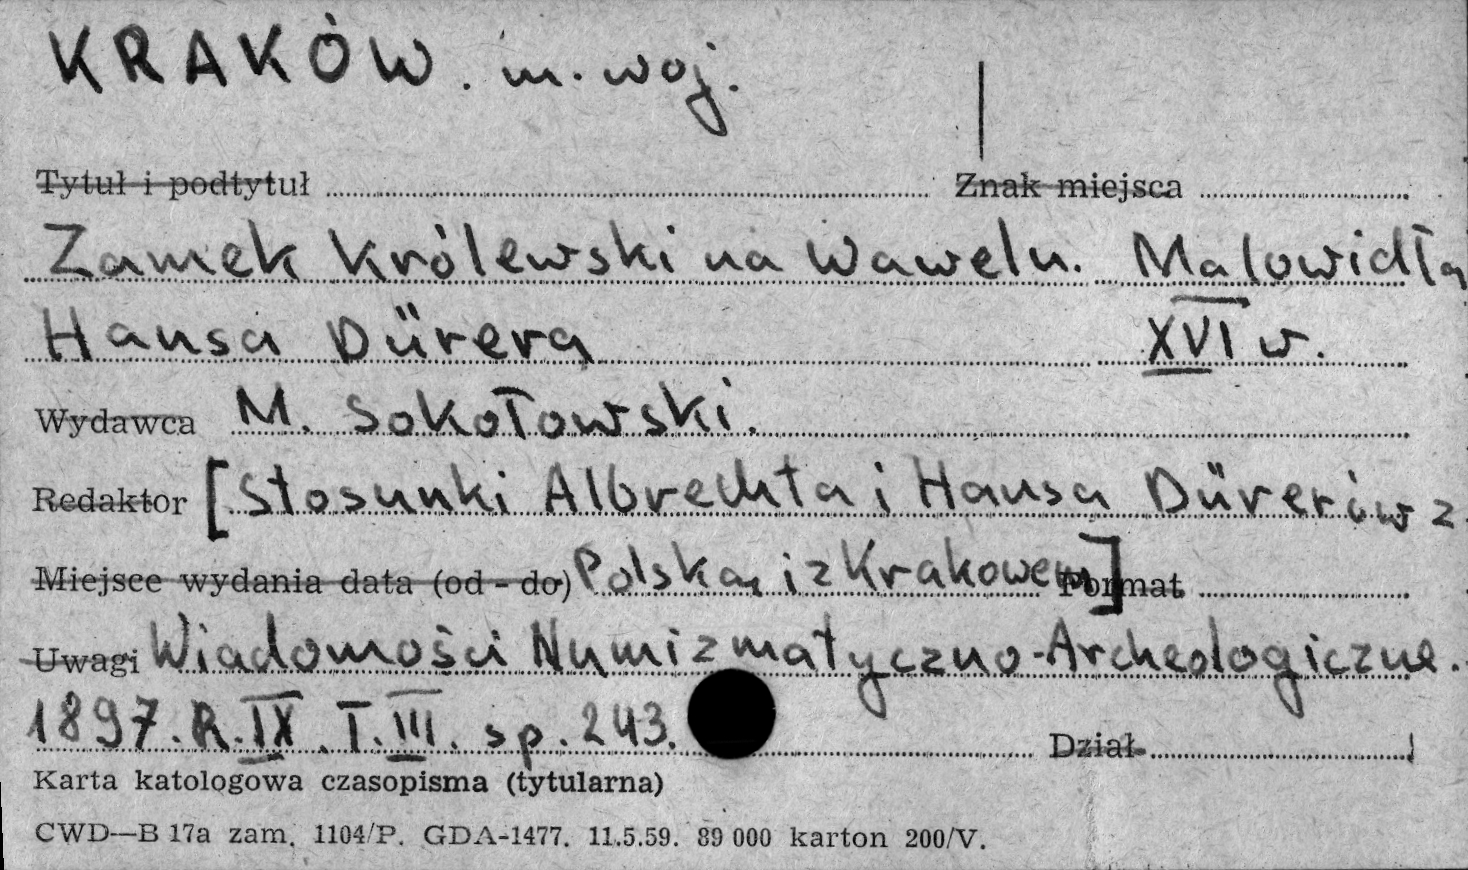 KRAKÓW. m. woj.
Tytuł i podtytuł Znak miejsca
Zamek Królewski na Wawelu. Malowidła
Hansa Dürera XVI w.
Wydawca M. Sokołowski.
Redaktor [Stosunki Albrechta i Hansa Dürerów z
Miejsce wydania data (od - do) Polską i z Krakowem] Format
Uwagi Wiadomości Numizmatyczno-Archeologiczne.
1897. R. IX. T. III. sp. 243. Dział
Karta katologowa czasopisma (tytularna)
CWD—B 17a zam. 1104/P. GDA-1477. 11.5.59. 89 000 karton 200/V.